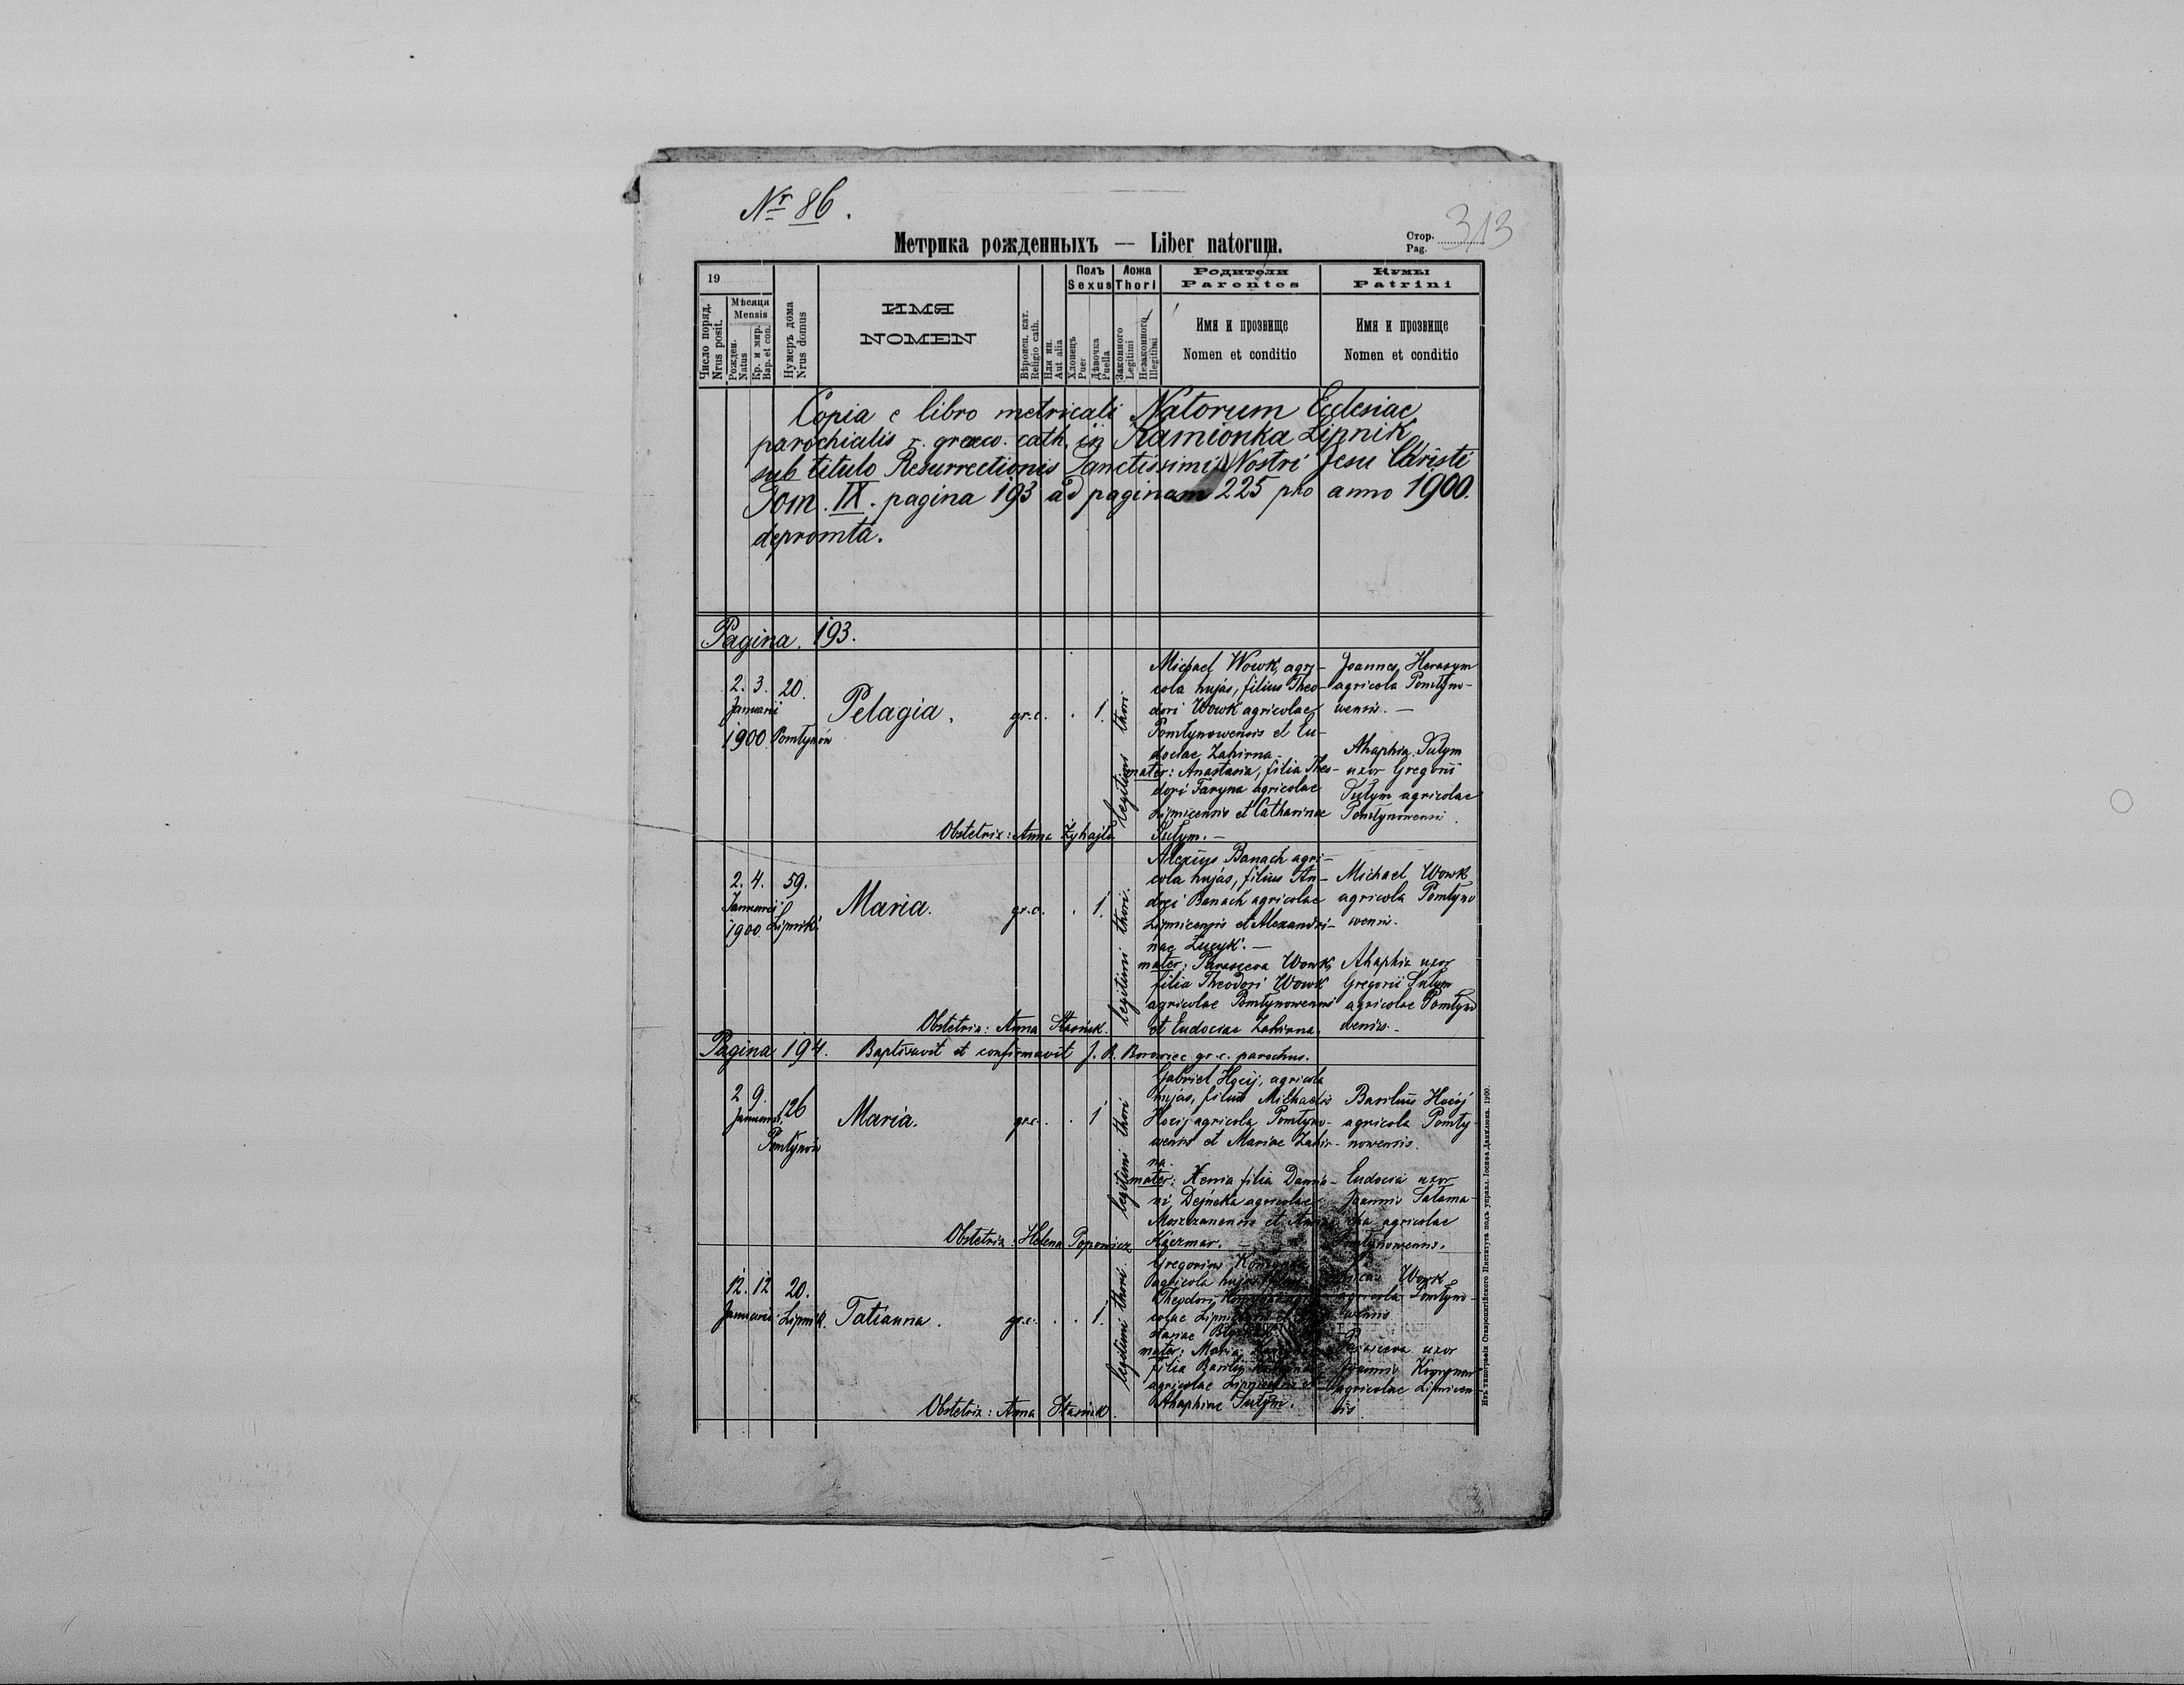 Nr 86.
313
Метрика рожденныхъ — Liber natorum.
Стор.
Pag.
19
Число поряд.
Nrus posit.
Мѣсяця
Mensis
Рожден.
Natus
Кр. и мир.
Bap. et con.
Нумеръ дома
Nrus domus
ИМЯ
NOMEN
Вѣроисп. кат.
Religio cath.
Или ин.
Aut alia
Полъ
Sexus
Хлопець
Puer
Дѣвочка
Puella
Ложа
Thori
Законного
Legitimi
Незаконного
Illegitimi
Родители
Parentes
Имя и прозвище
Nomen et conditio
Кумы
Patrini
Имя и прозвище
Nomen et conditio
Copia e libro metricali Natorum Ecclesiae
parochialis r. graeco. cath. in Kamionka Lipnik
sub titulo Resurrectionis Sanctissimi Nostri Jesu Christi
Tom. IX. pagina 193 ad paginam 225 pro anno 1900.
depromta.
Pagina. 193.
2. 3. 20.
Januarii
1900. Pomłynów
Pelagia. gr.c. . 1.
legitimi thori
Michael Wowk, agri-
cola hujas, filius Theo-
dori Wowk agricolae
Pomłynowensis et Eu-
dociae Zahirna.
mater: Anastasia, filia Theo-
dori Faryna agricolae
Lipnicensis et Catharinae
Sułym. —
Joannes Herasym
agricola Pomłyno-
wensis. —
Ahaphia Sułym
uxor Gregorii
Sułym agricolae
Pomłynowensis.
Obstetrix: Anna Żyhajło
2. 4. 59.
Januarii
1900. Lipnik.
Maria. gr.c. . 1.
legitimi thori.
Alexius Banach agri-
cola hujas, filius An-
drei Banach agricolae
Lipnicensis et Alexandri-
nae Łucyk. —
mater: Parasceva Wowk,
filia Theodori Wowk
agricolae Pomłynowensis
et Eudociae Zahirna.
Michael Wowk
agricola Pomłyno
wensis.
Ahaphia uxor
Gregorii Sułym
agricolae Pomłyno
wensis. —
Obstetrix: Anna Stasiuk.
Pagina 194. Baptisavit et confirmavit J. R. gr. c. parochus.
2 9. 126
Januarii.
Pomłynów
Maria. gr.c. . . 1
legitimi thori
Gabriel Hocij, agricola
hujas, filius Michaelis
Hocij agricola Pomłyno-
wensis et Mariae Zahir-
na.
mater: Xenia filia Damia-
ni Dejneka agricolae
Moszczanensis et Annae
Kiczmar.
Basilius Hocij
agricola Pomły-
nowensis.
Eudocia uxor
Joannis Sałama-
cha agricolae
Pomłynowensis.
Obstetrix: Helena Popowicz
12. 12 20.
Januarii. Lipnik.
Tatianna. gr.c. . . 1.
legitimi thori.
Gregorius
agricola hujas, filius
Theodori agri-
colae Lipnicensis et
stasiae
mater: Maria
filia Basilii
agricolae Lipnicensis et
Ahaphiae Sułym.
Wowk
agricola Pomłyno-
wensis
Parasceva uxor
Joannis
agricolae Lipnicen-
sis.
Obstetrix: Anna Stasiuk.
Изъ типографіи Ставропигійского Института подъ управл. Іосифа Данилюка. 1900.